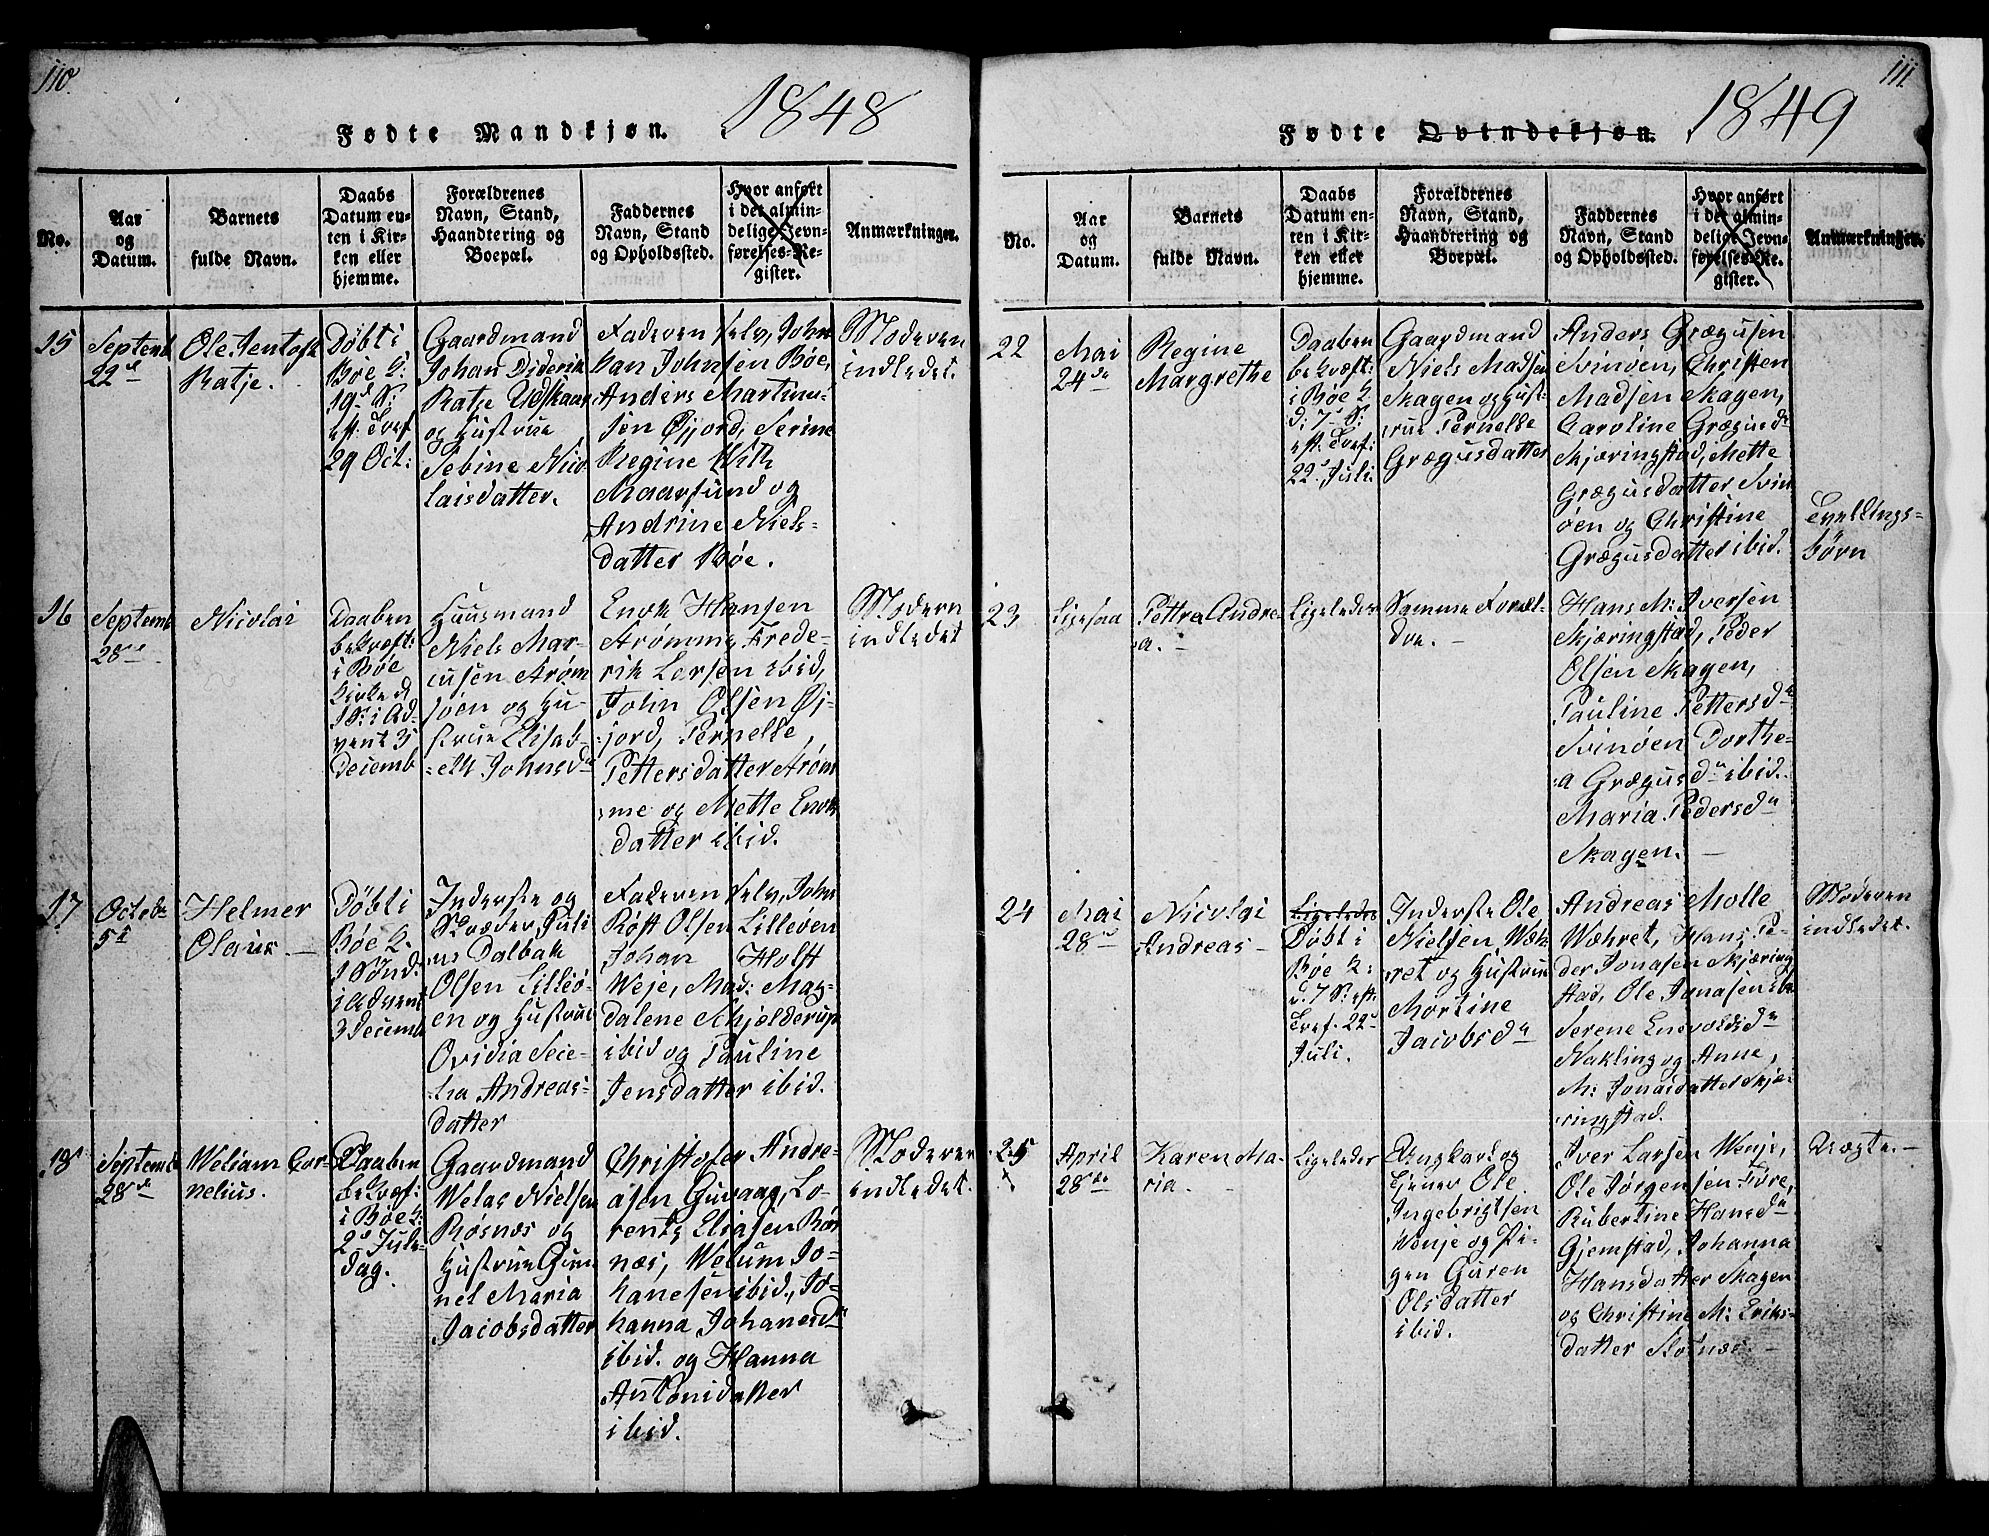 110.
Fødte Mandkjøn. 1848
No.
Aar
og
Datum.
Barnets
fulde Navn.
Daabs
Datum en-
ten i Kir-
ken eller
hjemme.
Forældrenes
Navn, Stand,
Haandtering og
Boepæl.
Faddernes
Navn, Stand
og Opholdssted.
Hvor anført
i det almin-
delige Jevn-
førelses-Re-
gister.
Anmærkninger.
15
Septemb
22de
Ole Jentoft
Ratje.
Døbt i
Bøe K:
19d S:
eft. Tref
29 Oct:
Gaardmand
Johan Diderik
Ratje Udskaar
og Hustrue
Sebine Nico-
laisdatter.
Faderen selv, John
Dan Johnsen Bøe,
Anders Martinu-
sen Øjord, Serine
Regine With
Maarsund og
Andrine Niels-
datter Bøe.
Moderen
indledet.
16
Septemb
28de
Nicolai
Daaben
bekræft:
i Bøe
Kirke d
1 S: i Ad-
vent 3
Decemb
Huusmand
Niels Mar-
cusen Arøm
søen og Hu-
strue Elisab-
eth Johnsdr
Enok Hansen
Arømme, Frede-
rik Larsen ibid,
John Olsen Øj-
jord, Pernelle
Pettersdatter Arøm
me og Mette Enok
datter ibid.
Modern
indledet
17
Octobr
5te
Helmer
Olaus. –
Døbt i
Bøe K.
1 Sønd.
i Advent
3 Decemb
Inderste og
Skræder Juli
us Dalbak
Olsen Lilleø-
en og Hustrue
Ovidia Seie-
ha Andreas-
datter
Faderen selv, John
Røst Olsen Lilleøen
Johan Holst
Weje, Mad: Mag-
dalene Schjelderup
ibid og Pauline
Jensdatter ibid.
18
Septemb
28de
Weliam Cor-
nelius.
Daaben
bekræf:
i Bøe K:
2d Jule-
dag.
Gaardmand
Welas Nielsen
Røsnæs og
Hustrue Gun
nel Maria
Jacobsdatter
Christofer Andre-
asen Guvaag, Lo-
rents Eliasen Røs
næs, Welum Jo-
hanesen ibid, Jo-
hanna Johanesdr
ibid. og Hanna
Antonidatter
ibid.
Moderen
indledet.
111.
Fødte Qvindekjøn. 1849
No.
Aar
og
Datum.
Barnets
fulde Navn.
Daabs
Datum en-
ten i Kir-
ken eller
hjemme.
Forældrenes
Navn, Stand,
Haandtering og
Boepæl.
Faddernes
Navn, Stand
og Opholdssted.
Hvor anført
i det almin-
delige Jevn-
førelses-Re-
gister.
Anmærkninger.
22
Mai
24de
Regine
Margrethe
Daaben
bekræft:
i Bøe K
d: 7d S:
eft. Tref:
22d Juli.
Gaardmand
Niels Madsen
Skagen og Hust-
rue Pernelle
Grægusdatter
Anders Grægusen
Svinøen, Christen
Madsen Skagen,
Caroline Grægusdr
Skjæringstad, Mette
Grægusdatter Svin
øen og Christine
Grægusdatter ibid.
Tvellings-
børn
23
Ligesaa
Pettra Andre-
a. –
Ligeledes
Samme Foræl-
dre. –
Hans M: Iversen
Skjæringstad, Peder
Olsen Skagen,
Pauline Pettersdr
Svinøen Dorthe-
a Grægusdr ibid.
Maria Pedersdr
Skagen. –
24
Mai
28de
Nicolai
Andreas –
Ligeledes
Døbt i
Bøe K:
d. 7 S: eft.
Tref. 22d
Juli.
Inderste Ole
Nielsen Wæh-
ret og Hustrue
Martine
Jacobsdr
Andreas Molle
Wæhret, Hans Pe-
der Jonasen Skjæring
stad, Ole Jonasen ibd
Serene Enevoldsdr
Nakling og Anne,
M: Jonasdatter Skjæ-
ringstad.
Moderen
indledet.
25
April
28de
Karen Ma-
ria. –
Ligeledes
Ungkarl og
Tjener Ole
Ingebrigtsen
Wenje og Pi-
gen Guren
Olsdatter
ibid.
Iver Larsen Wenje,
Ole Jørgensen Føre,
Rubertine Hansdr
Gjemstad, Johanna
Hansdatter Skagen
og Christine M: Eriks-
datter Slotnæs. –
Uægte. –